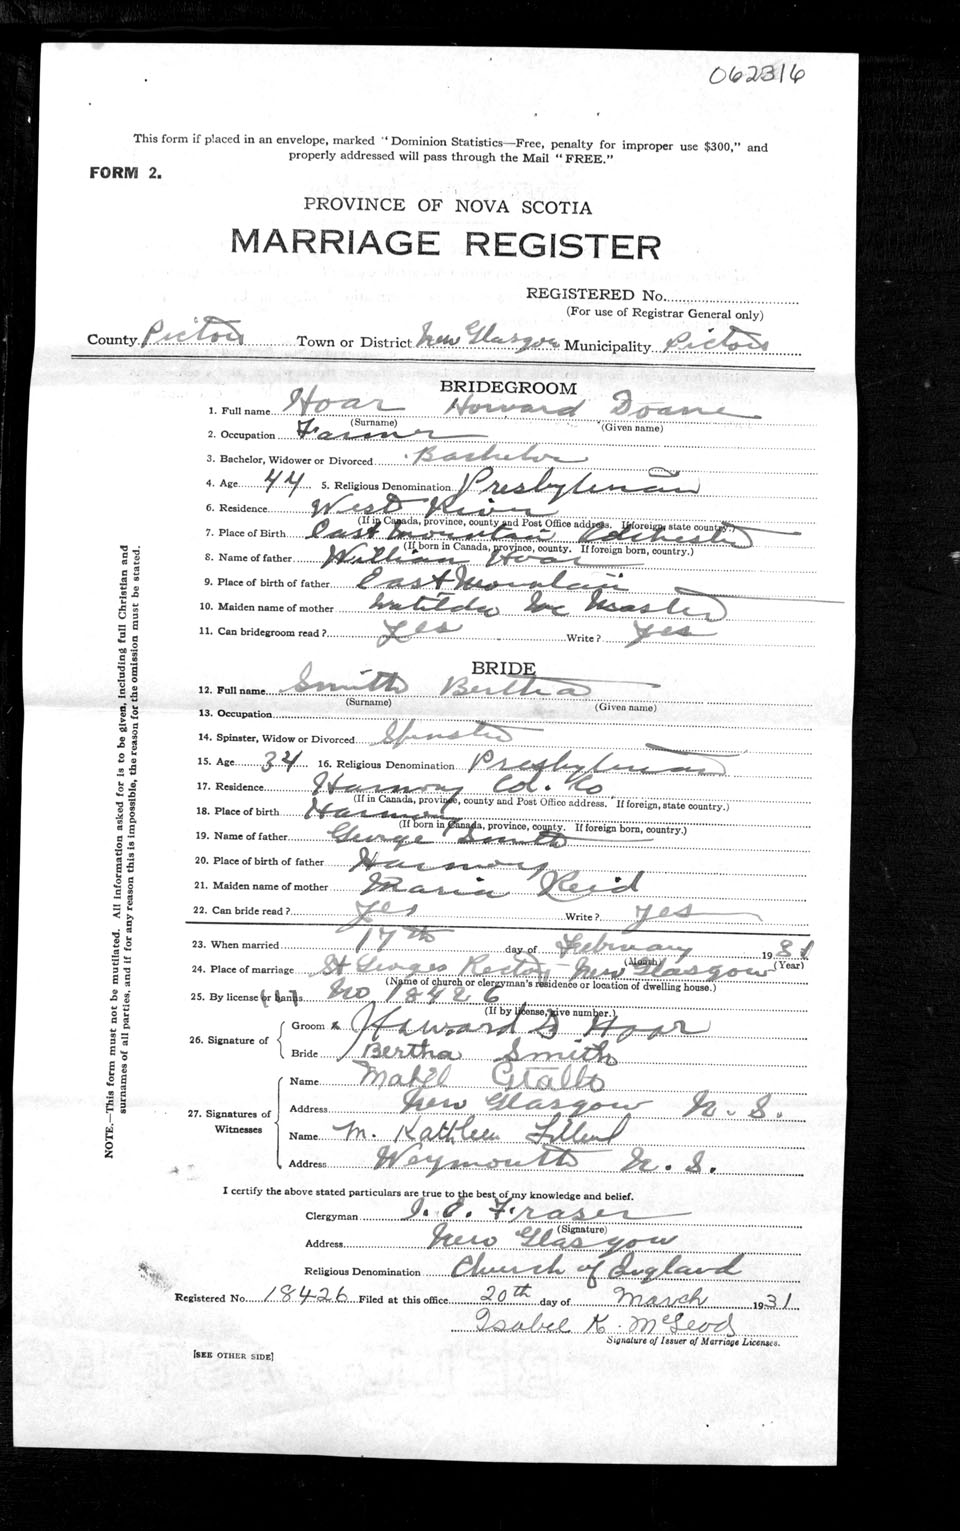 062316
This form if placed in an envelope, marked "Dominion Statistics—Free, penalty for improper use $300," and
properly addressed will pass through the Mail "FREE."
FORM 2.
PROVINCE OF NOVA SCOTIA
MARRIAGE REGISTER
REGISTERED No.
(For use of Registrar General only)
County Pictou Town or District New Glasgow Municipality Pictou
BRIDEGROOM
1. Full name Hoar Howard Doane
(Surname) (Given name)
2. Occupation Farmer
3. Bachelor, Widower or Divorced Bachelor
4. Age 44 5. Religious Denomination Presbyterian
6. Residence West River
(If in Canada, province, county and Post Office address. If foreign state country.)
7. Place of Birth East Mountain Colchester
(If born in Canada, province, county. If foreign born, country.)
8. Name of father William Hoar
9. Place of birth of father East Mountain
10. Maiden name of mother Matilda Mc Master
11. Can bridegroom read? Yes Write? Yes
BRIDE
12. Full name Smith Bertha
(Surname) (Given name)
13. Occupation
14. Spinster, Widow or Divorced Spinster
15. Age 34 16. Religious Denomination Presbyterian
17. Residence Harmony Col. Co
(If in Canada, province, county and Post Office address. If foreign, state country.)
18. Place of birth Harmony
(If born in Canada, province, county. If foreign born, country.)
19. Name of father George Smith
20. Place of birth of father Harmony
21. Maiden name of mother Maria Reid
22. Can bride read? Yes Write? Yes
23. When married 17th day of February 1931
(Month) (Year)
24. Place of marriage St Georges Rectory New Glasgow
(Name of church or clergyman's residence or location of dwelling house.)
25. By license (or banns) No 18426
(If by license, give number.)
26. Signature of
Groom x Howard D Hoar
Bride Bertha Smith
27. Signatures of Witnesses
Name Mabel
Address New Glasgow N. S.
Name M. Kathleen
Address Weymouth N. S.
I certify the above stated particulars are true to the best of my knowledge and belief.
Clergyman Fraser
(Signature)
Address New Glasgow
Religious Denomination Church of England
Registered No. 18426 Filed at this office 20th day of March 1931
Isabel K. McLeod
Signature of Issuer of Marriage Licenses.
[SEE OTHER SIDE]
NOTE.—This form must not be mutilated. All information asked for is to be given, including full Christian and
surnames of all parties, and if for any reason this is impossible, the reason for the omission must be stated.